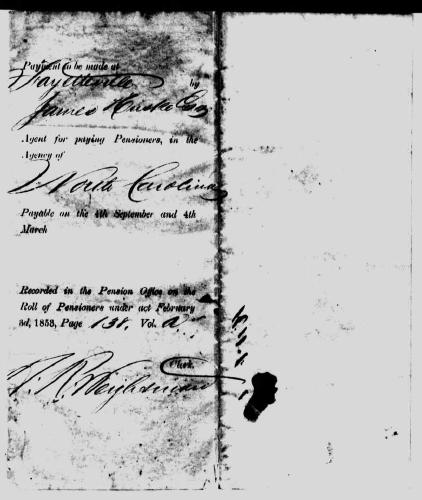 Payment to be made at
Fayetteville by
James Huske Esq
Agent for paying Pensioners, in the
Agency of
North Carolina
Payable on the 4th September and 4th
March
Recorded in the Pension Office on the
Roll of Pensioners under act February
3d, 1853, Page 138, Vol. A
Clerk.